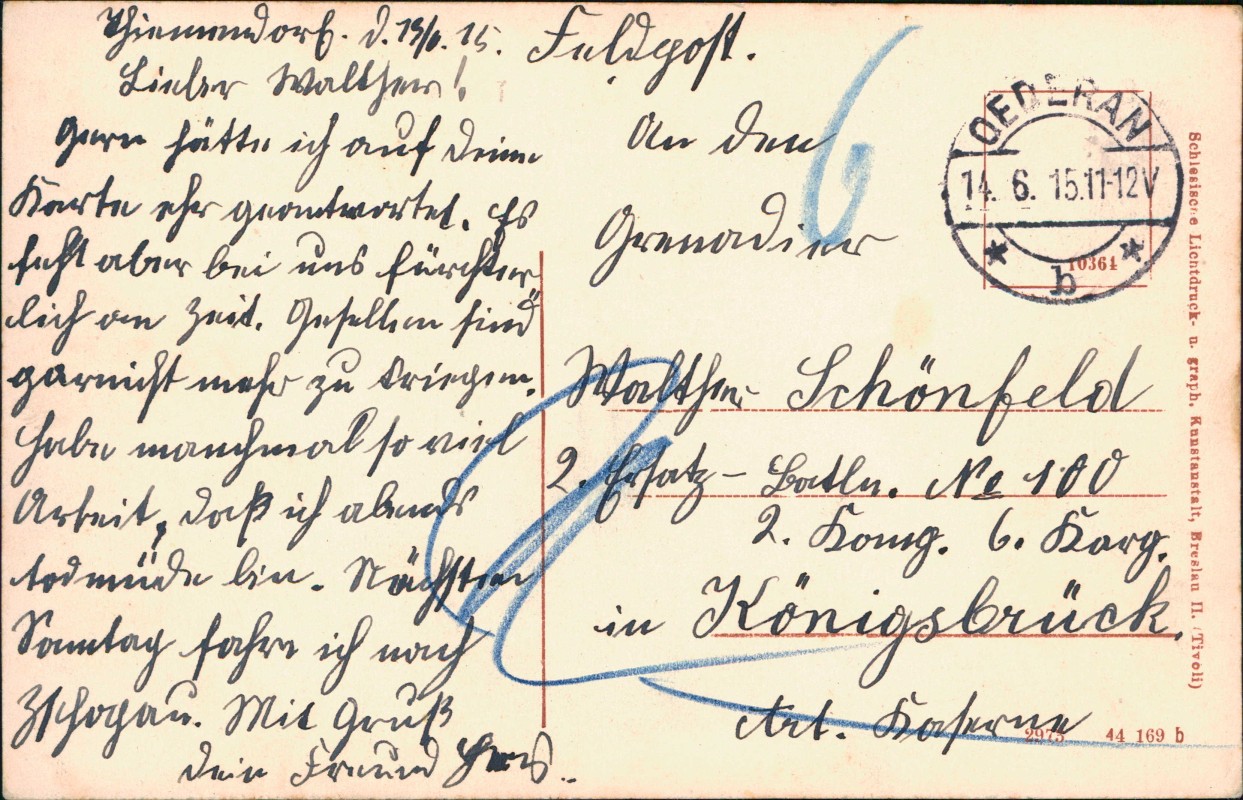 Thiemendorf. d. 13/6. 15.
Lieber Walther!
Gern hätte ich auf Deine
Karte ehr geantwortet. Es
fehlt aber bei uns fürchter
lich an Zeit. Gesellen sind
garnicht mehr zu kriegen.
Habe manchmal so viel
Arbeit, daß ich abends
todmüde bin. Nächsten
Sonntag fahre ich nach
Zschopau. Mit Gruß
Dein Freund
Feldpost.
An den
Grenadier
Walther Schönfeld
2. Ersatz-Batln. No 100
2. Komp. 6. Korp.
in Königsbrück.
Art. Kaserne
6
OEDERAN
14. 6. 15.11-12V
* b *
10364
Schlesische Lichtdruck- u. graph. Kunstanstalt, Breslau II. (Tivoli)
2975 44 169 b